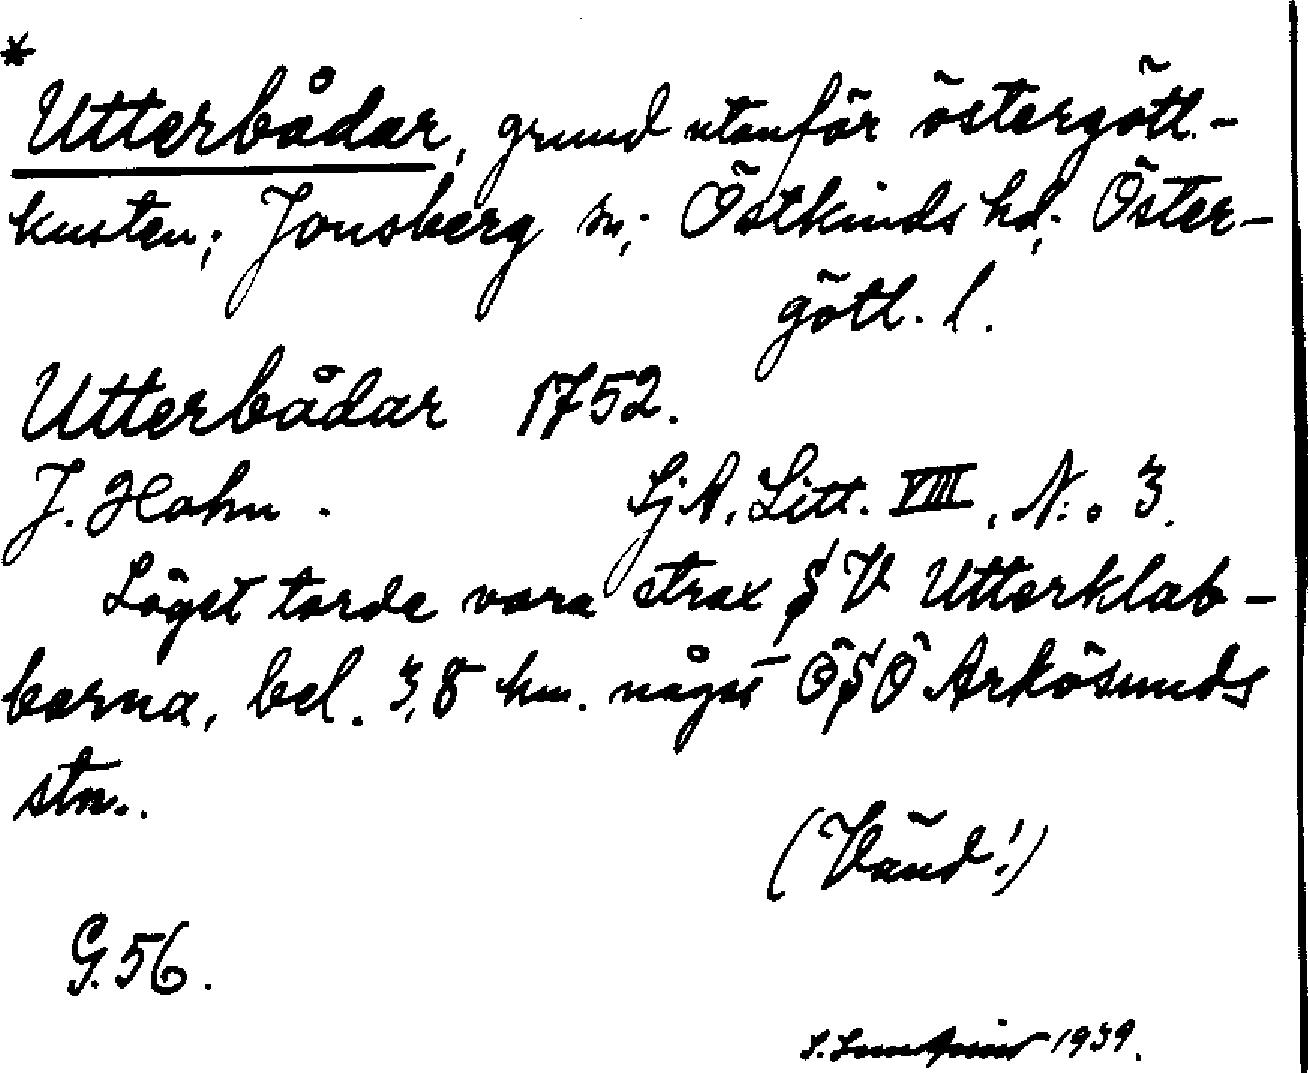 *
Utterbådar, grund utanför östergötl.-
kusten; Jonsberg sn; Östkinds hd; Öster-
götl. l.
Utterbådar 1752.
J. Hahn. SjA, Litt. VIII, N:o 3.
Läget torde vara strax SV Utterklab-
barna, bel. 3,8 km. något ÖSÖ Arkösunds
stn..
(Vänd!)
G. 56.
S. Lundquist 1939.